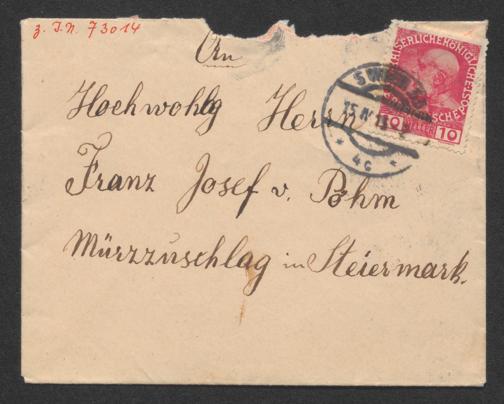 z. I.N. 73014
An
Hochwohlg Herrn
Franz Josef v. Böhm
Mürzzuschlag in Steiermark.
KAISERLICHE KÖNIGLICHE
HELLER 10
15 IV 13
* 4c *